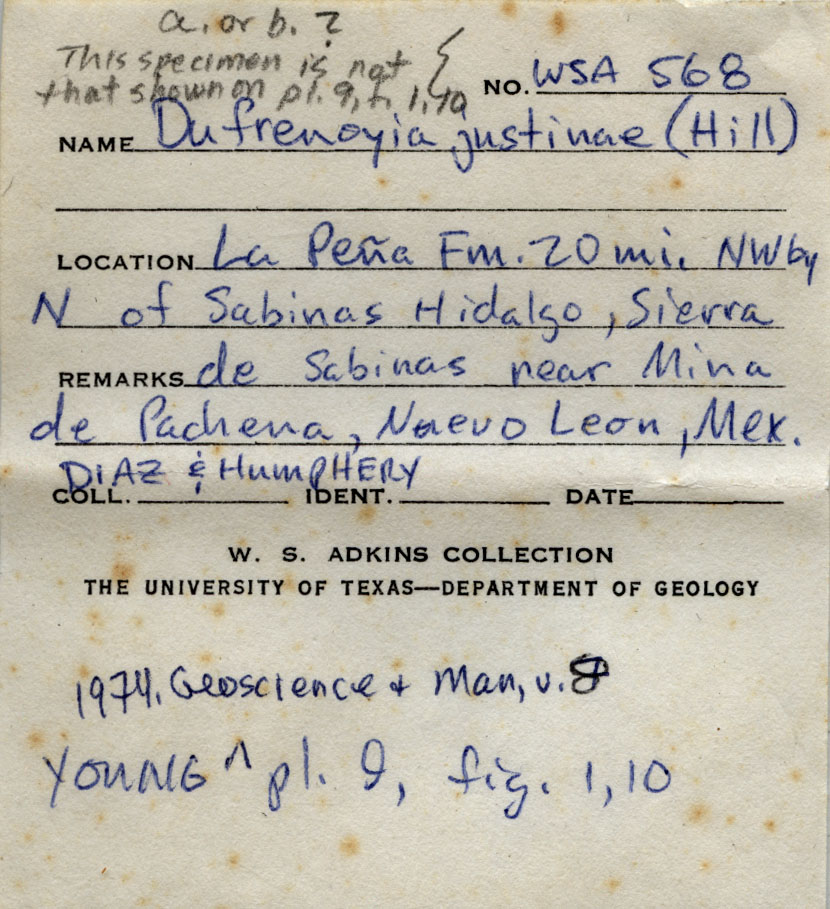 a. or b. ?
This specimen is not
that shown on pl. 9, f. 1, 10
NO. WSA 568
NAME Dufrenoyia justinae (Hill)
LOCATION La Peña Fm. 20 mi. NW by
N of Sabinas Hidalgo, Sierra
REMARKS de Sabinas near Mina
de Pachena, Nuevo Leon, Mex.
DIAZ & HumPHERY
COLL. IDENT. DATE
W. S. ADKINS COLLECTION
THE UNIVERSITY OF TEXAS—DEPARTMENT OF GEOLOGY
1974. Geoscience & Man, v. 8
YOUNG ^ pl. 9, fig. 1, 10